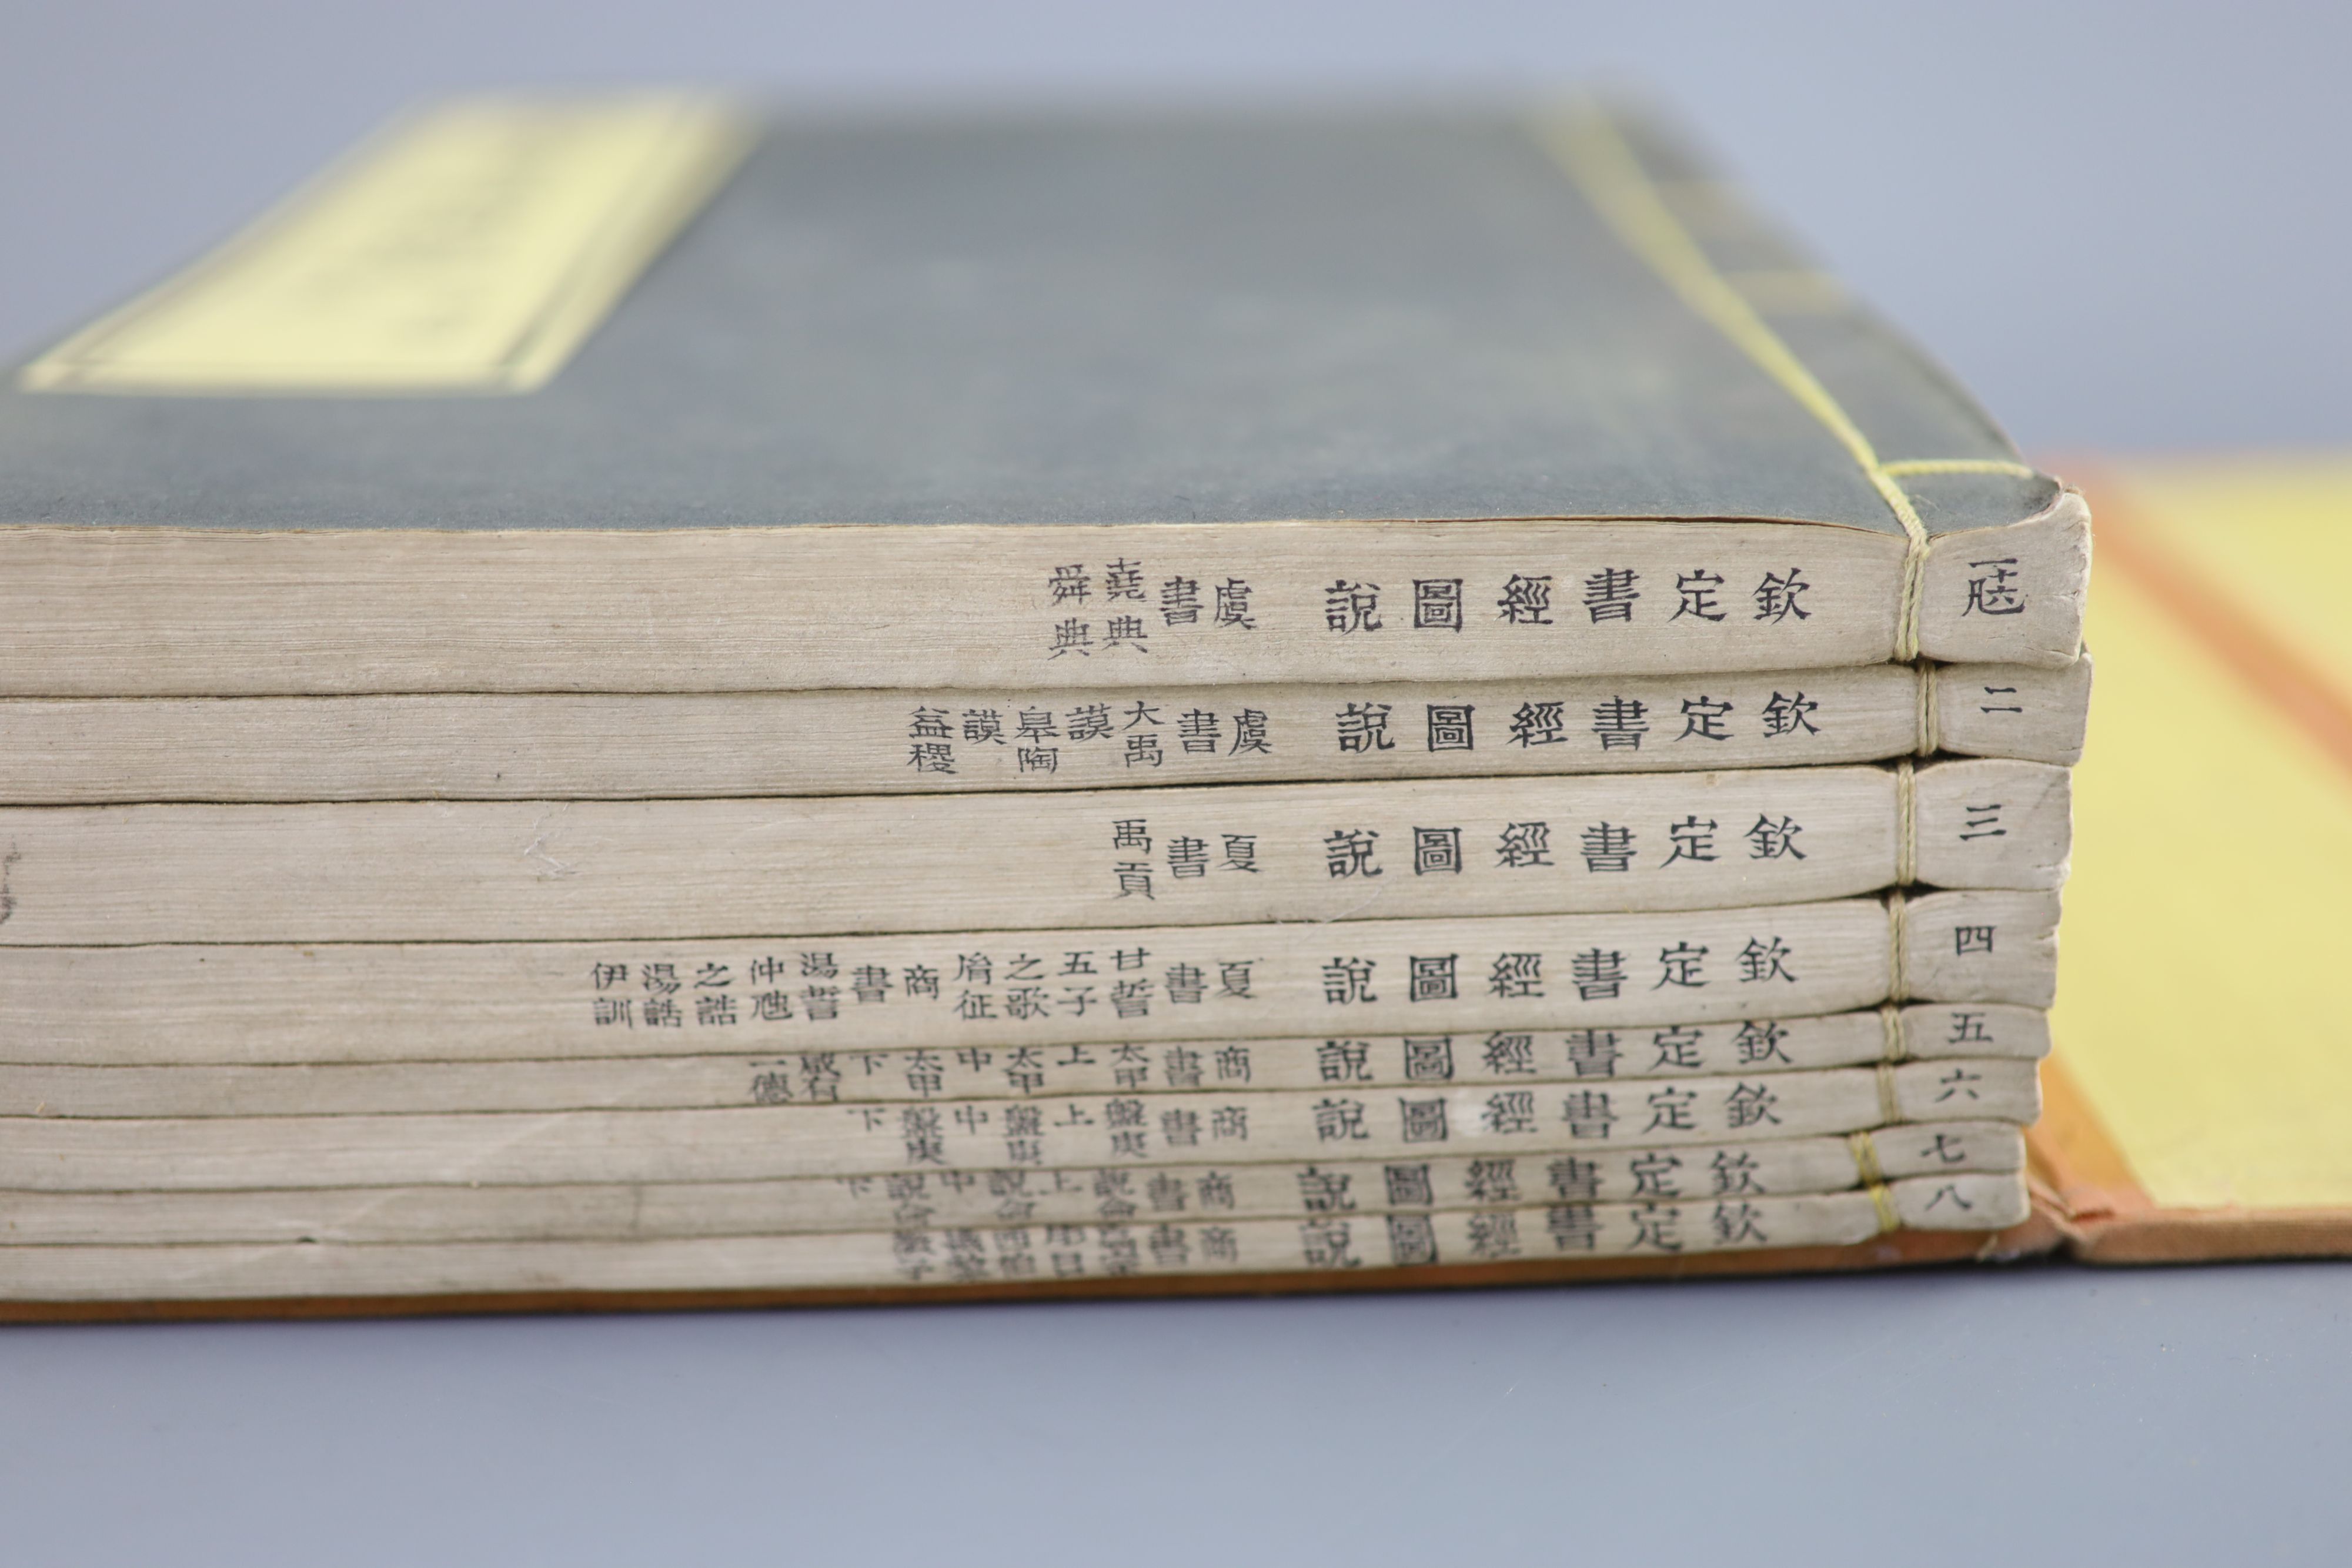 一 欽定書經圖說 虞書 堯典 舜典
二 欽定書經圖說 虞書 大禹謨 皋陶謨 益稷
三 欽定書經圖說 夏書 禹貢
四 欽定書經圖說 夏書 甘誓 五子之歌 胤征 商書 湯誓 仲虺之誥 湯誥 伊訓
五 欽定書經圖說 商書 太甲上 太甲中 太甲下 咸有一德
六 欽定書經圖說 商書 盤庚上 盤庚中 盤庚下
七 欽定書經圖說 商書 說命上 說命中 說命下
八 欽定書經圖說 商書 高宗肜日 西伯戡黎 微子